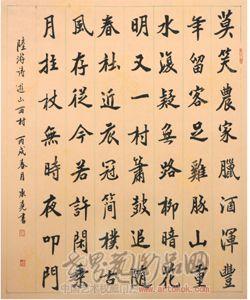 莫笑農家臘酒渾豐
年留客足雞豚山重
水復疑無路柳暗花
明又一村簫鼓追隨
春社近衣冠簡樸古
風存從今若許閑乘
月拄杖無時夜叩門
陸游詩 遊山西村 丙戌春月 書